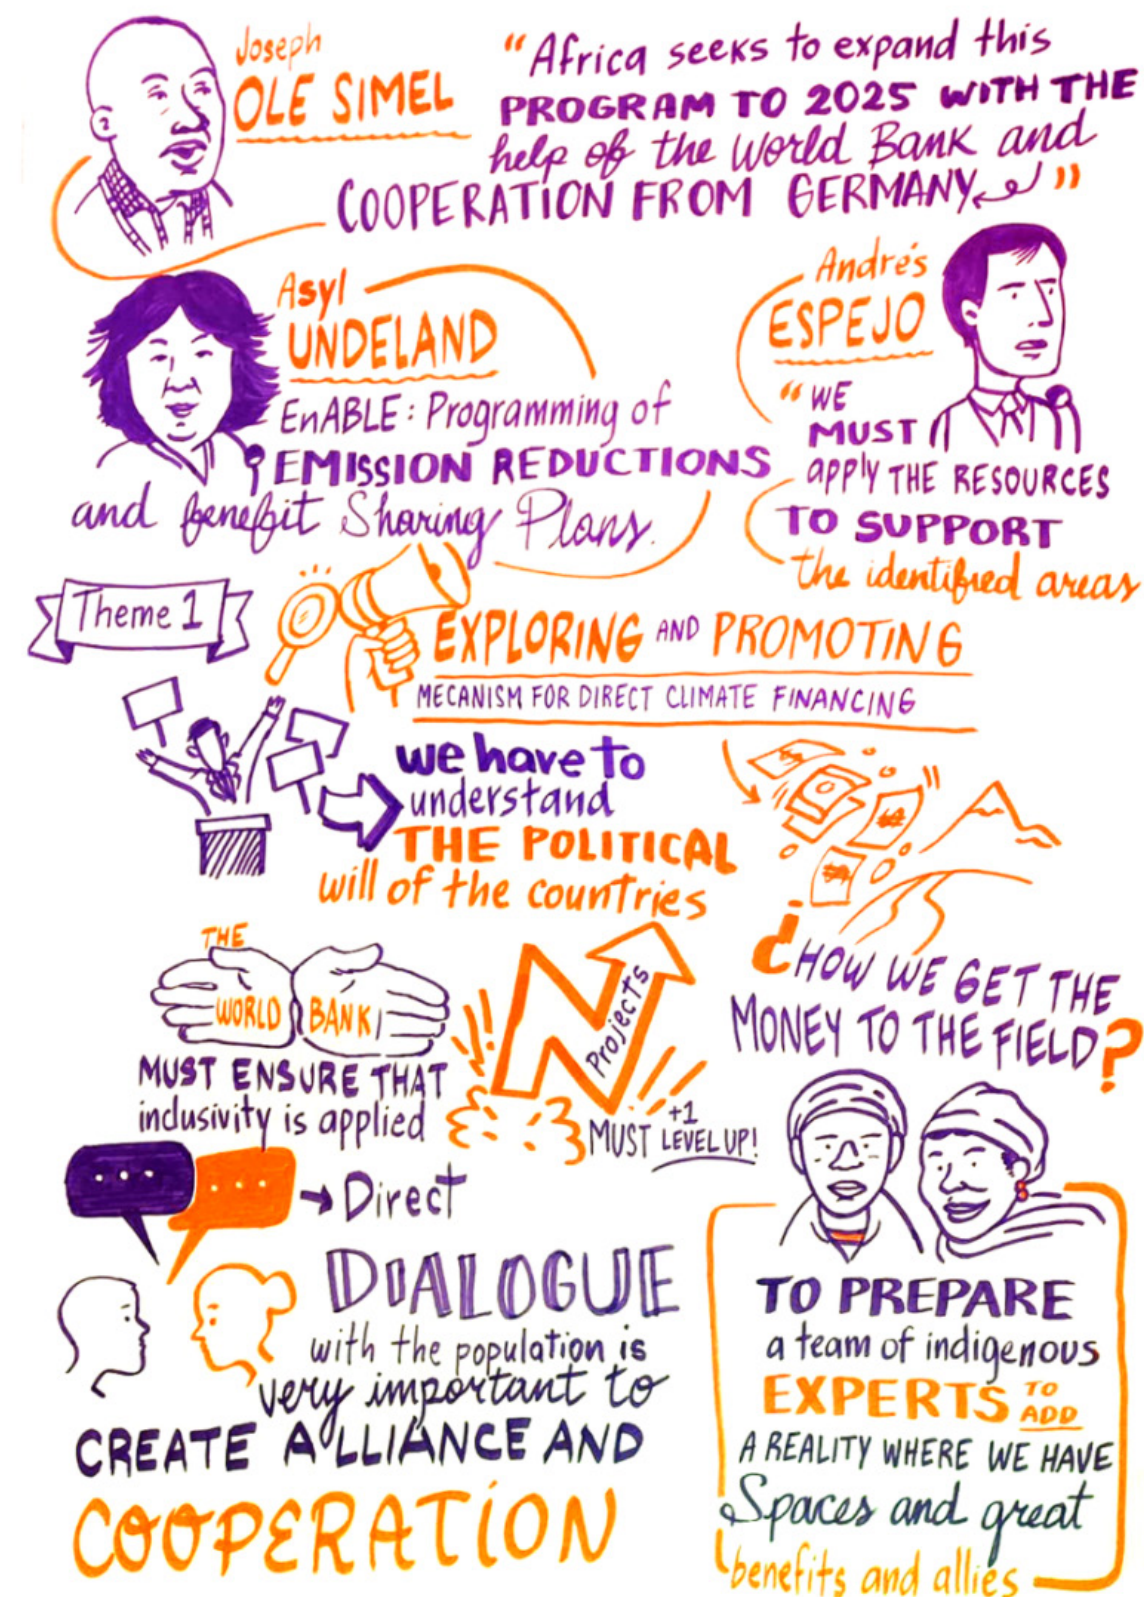 Joseph
OLE SIMEL
"Africa seeks to expand this
PROGRAM TO 2025 WITH THE
help of the World Bank and
COOPERATION FROM GERMANY"
Asyl
UNDELAND
EnABLE: Programming of
EMISSION REDUCTIONS
and benefit Sharing Plans.
Andrés
ESPEJO
"WE
MUST
apply THE RESOURCES
TO SUPPORT
the identified areas
Theme 1
EXPLORING AND PROMOTING
MECANISM FOR DIRECT CLIMATE FINANCING
we have to
understand
THE POLITICAL
will of the countries
¿HOW WE GET THE
MONEY TO THE FIELD?
THE
WORLD BANK
MUST ENSURE THAT
inclusivity is applied
Projects
+1
MUST LEVEL UP!
Direct
DIALOGUE
with the population is
very important to
CREATE ALLIANCE AND
COOPERATION
TO PREPARE
a team of indigenous
EXPERTS TO
ADD
A REALITY WHERE WE HAVE
Spaces and great
benefits and allies